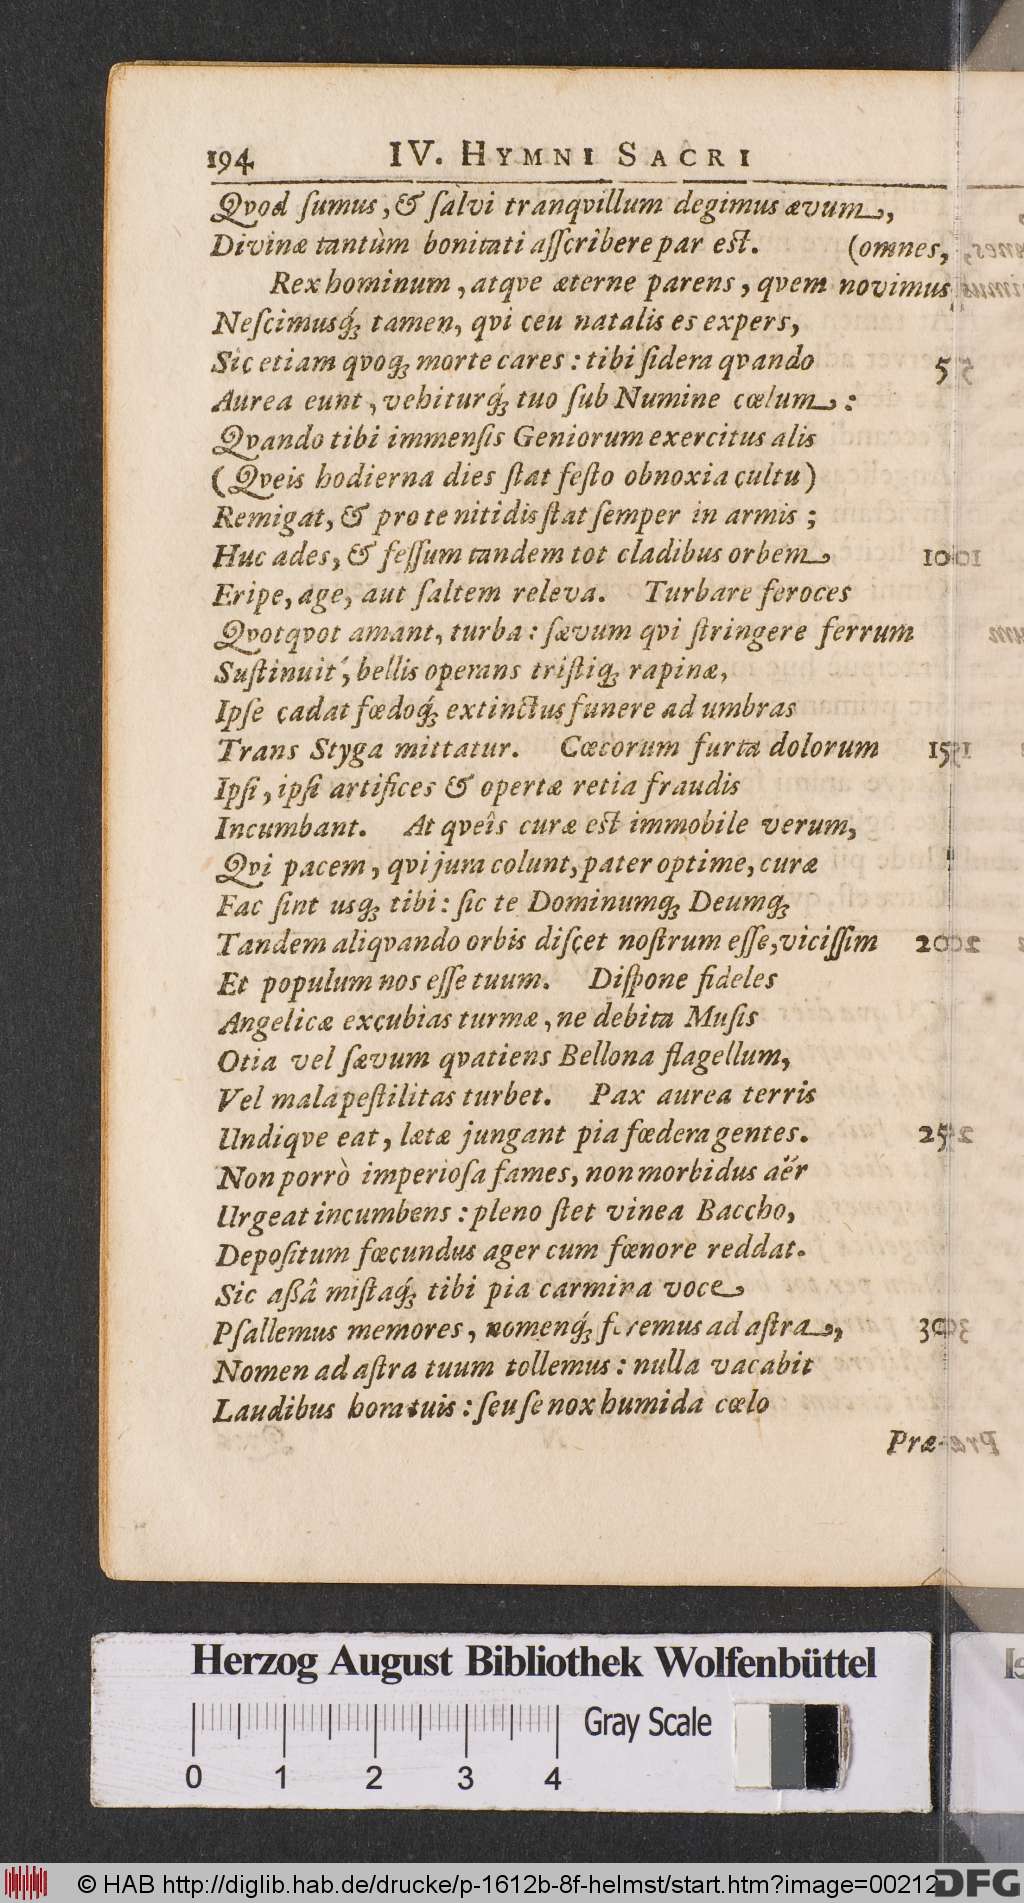 194 IV. HYMNI SACRI
Qvod ſumus, & ſalvi tranqvillum degimus ævum,
Divinæ tantùm bonitati aſſcribere par eſt. (omnes,
Rex hominum, atqve æterne parens, qvem novimus
Neſcimusq́ꝫ tamen, qvi ceu natalis es expers,
Sic etiam qvoqꝫ morte cares: tibi ſidera qvando 5
Aurea eunt, vehiturq́ꝫ tuo ſub Numine cœlum:
Qvando tibi immenſis Geniorum exercitus alis
(Qveis hodierna dies ſtat feſto obnoxia cultu)
Remigat, & pro te nitidis ſtat ſemper in armis;
Huc ades, & feſſum tandem tot cladibus orbem 10
Eripe, age, aut ſaltem releva. Turbare feroces
Qvotqvot amant, turba: ſævum qvi ſtringere ferrum
Suſtinuit, bellis operans triſtiqꝫ rapinæ,
Ipſe cadat fœdoq́ꝫ extinctus funere ad umbras
Trans Styga mittatur. Cœcorum furta dolorum 15
Ipſi, ipſi artifices & opertæ retia fraudis
Incumbant. At qveîs curæ eſt immobile verum,
Qvi pacem, qvi jura colunt, pater optime, curæ
Fac ſint usqꝫ tibi: ſic te Dominumqꝫ Deumqꝫ
Tandem aliqvando orbis diſcet noſtrum eſſe, viciſſim 20
Et populum nos eſſe tuum. Diſpone fideles
Angelicæ excubias turmæ, ne debita Muſis
Otia vel ſævum qvatiens Bellona flagellum,
Vel mala peſtilitas turbet. Pax aurea terris
Undiqve eat, lætæ jungant pia fœdera gentes. 25
Non porrò imperioſa fames, non morbidus aër
Urgeat incumbens: pleno ſtet vinea Baccho,
Depoſitum fœcundus ager cum fœnore reddat.
Sic aßâ miſtaq́ꝫ tibi pia carmina voce
Pſallemus memores, nomenq́ꝫ feremus ad aſtra, 30
Nomen ad aſtra tuum tollemus: nulla vacabit
Laudibus hora tuis: ſeu ſe nox humida cœlo
Præ-
Herzog August Bibliothek Wolfenbüttel
Gray Scale
0 1 2 3 4
© HAB http://diglib.hab.de/drucke/p-1612b-8f-helmst/start.htm?image=00212
DFG